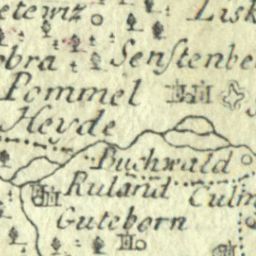 etewiz
Lisk
obra
Senſtenbe
Pommel
Heyde
Buchwald
Ruland
Culm
Guteborn